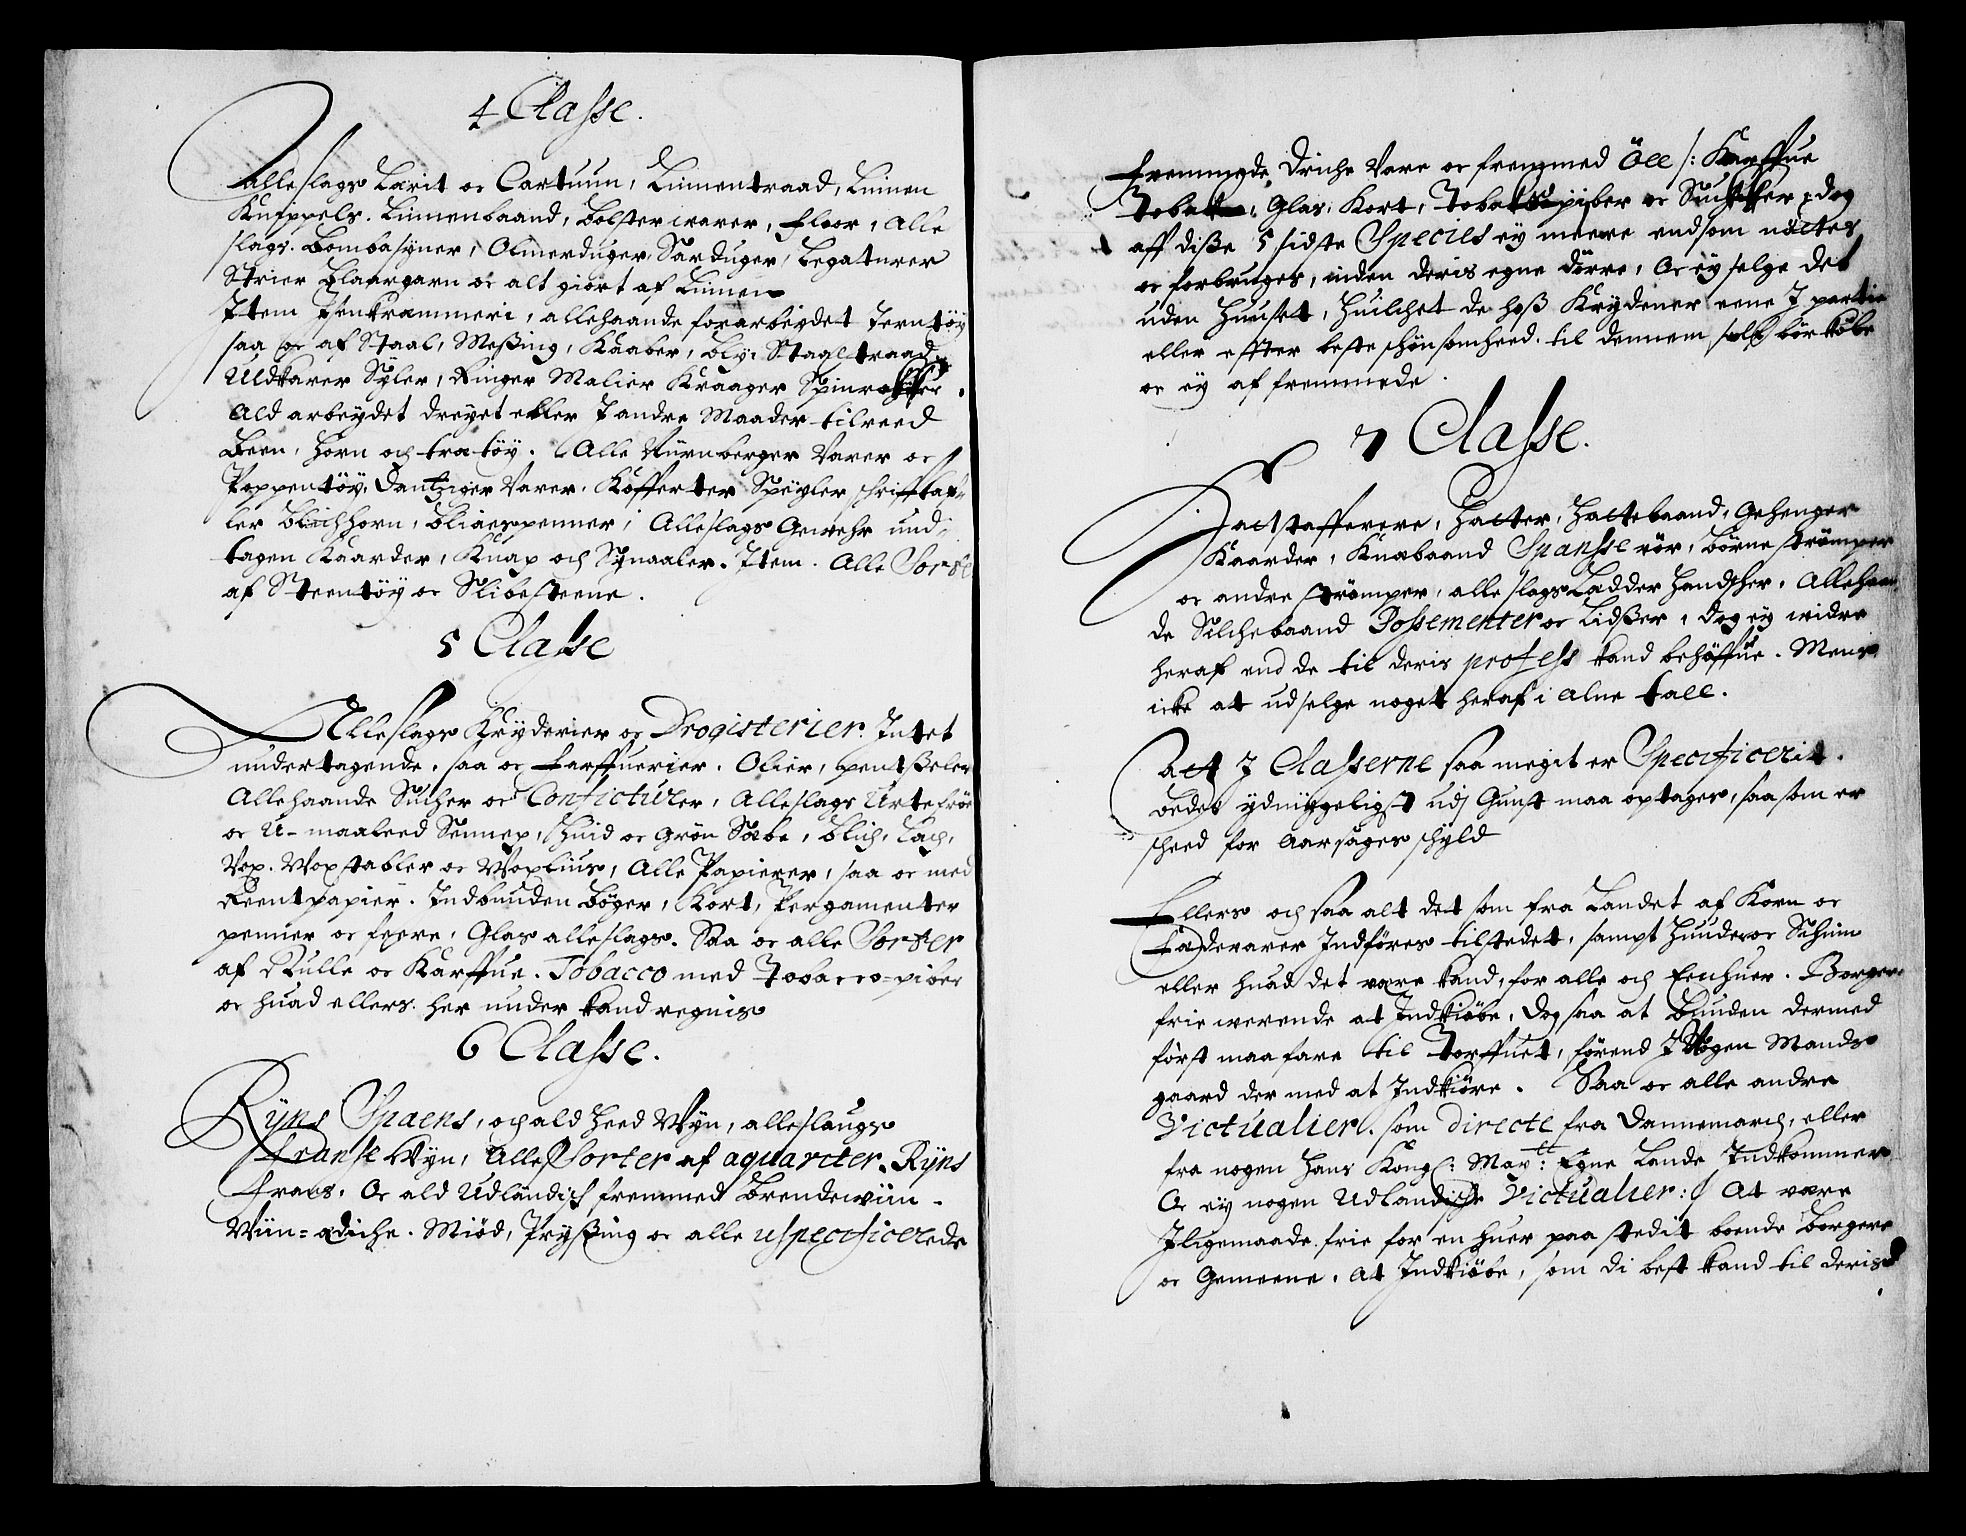 4 Classe.
Alleslags Lærit oc Cartuun, Linnentraad, Linnen
Knippels. Linnenbaand, bolsterwarer, Floor, Alle
slags Bombasyner, Olmerduger, Sarduger, Legaturer
Strier Blaargarn oc alt giort af Linnen
Item Isenkrammeri, allehaande forarbeydet Jerntöy
saa oc af Staal, Meßing, Kaaber, bly, Staaltraad,
Uldkarer Syler, Ringer Malier Kraager Spinrokker.
Ald arbeydet dreyet eller I andre Maader tilreed
Been, Horn och tratöy. Alle Nürnberger Varer oc
Poppentöy, Dantziger Varer. Kofferter Speyler schrifftaf-
ler blechhorn, bliaespenner, Alleslags Gewehr und-
tagen Kaarder, Knap och Synaaler. Item. Alle Sorter
af Steentöy oc Slibesteene.
5 Classe
Alleslags Kryderier oc Drogisterier. Intet
undertagende. saa oc Farffuerier. Olier, pentßeler
Allehaande Sucher oc Confictürer, Alleslags Urtefröe
oc U-maaleed Sennep, Huid oc grön Sæbe, blich, Lach,
Vox. Voxstabler oc Voxlius, Alle Papierer, saa oc med
Reent papier. Indbunden bøger, Kort, Pergamenter
penner oc feere, Glas alleslags. Saa oc alle Sorter
af Rulle oc Karffue. Tobacco med Tobacco-piber
oc huad ellers her under kand regnis
6 Classe.
Ryns Spaens, och ald Heed Vyn, alleslaugs
Franse Vyn, Alle Sorter af aquariter. Ryns
Fraes. Oc ald Udländisch fremmed brendewiin-
Viin-ædiche. Miød, Pryßing oc alle uspecificerede
fremmede Driche Vare oc fremmed Öll /: Karffue
Tobak, Glas, Kort, Tobakspiber oc Suckker, dog
aff diße 5 sidste Species ey meere end som nöttes
oc forbruges, inden deris egne dörre, Oc ey selge det
uden Huuset, Huilchet de hoß Krydener eene I partie
eller effter beste schönsomheed til dennem self bör købe
oc ey af fremmede.
7 Classe.
Hatstafferere, Hatter, Hattebaand, Gehenger
Kaarder, Knæbaand Spansse rör, börne strömper
oc andre strömper, alle slags Ladder Handscher, Allehaan-
de Silchebaand Possementer oc Lidßer, dog ey widre
heraf end de til deris profess kand behöffue. Mens
icke at udselge noget heraf i Alne tall.
Att 7 Classerne saa megit er Specificerit.
bedes ydmyggeligst udj Gunst maa optages, saasom er
scheed for Aarsages schyld
Ellers och saa alt det som fra Landet af Korn oc
Fædevarer Indföres til stedet, sampt Huuder oc Schiin
eller huad det være kand, for alle och Eenhuer. Borger
frie werende at Indkiöbe, dog saa at bunden dermed
först maa fare til Torffuet, förend I Nogen Mands
gaard der med at Indkiöre. Saa oc alle andre
Victualier. som directe fra Dannemarch, eller
fra nogen Hans Kong: May:tt Egne Lande Indkommer
Oc ey nogen Udlandische Victualier :/ At være
Iligemaade frie for en huer paa stedit boende borgere
oc Gemeene, At Indkiöbe, som di best kand til deris